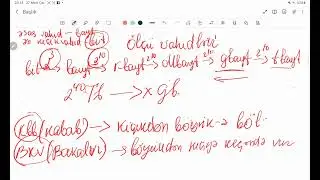 Başlıq
əsas vahid – bayt
ən kiçik vahid bit
Ölçü vahidləri
bit → bayt → k-bayt → Mbayt → gbayt → tbayt
2³ 2¹⁰ 2¹⁰ 2¹⁰ 2¹⁰
2⁴⁰ Tb → x gb.
KBB (Kabab) → Kiçikdən böyük-ə böl.
BKV (Bakalavr) → böyükdən kiçiyə keçəndə vur